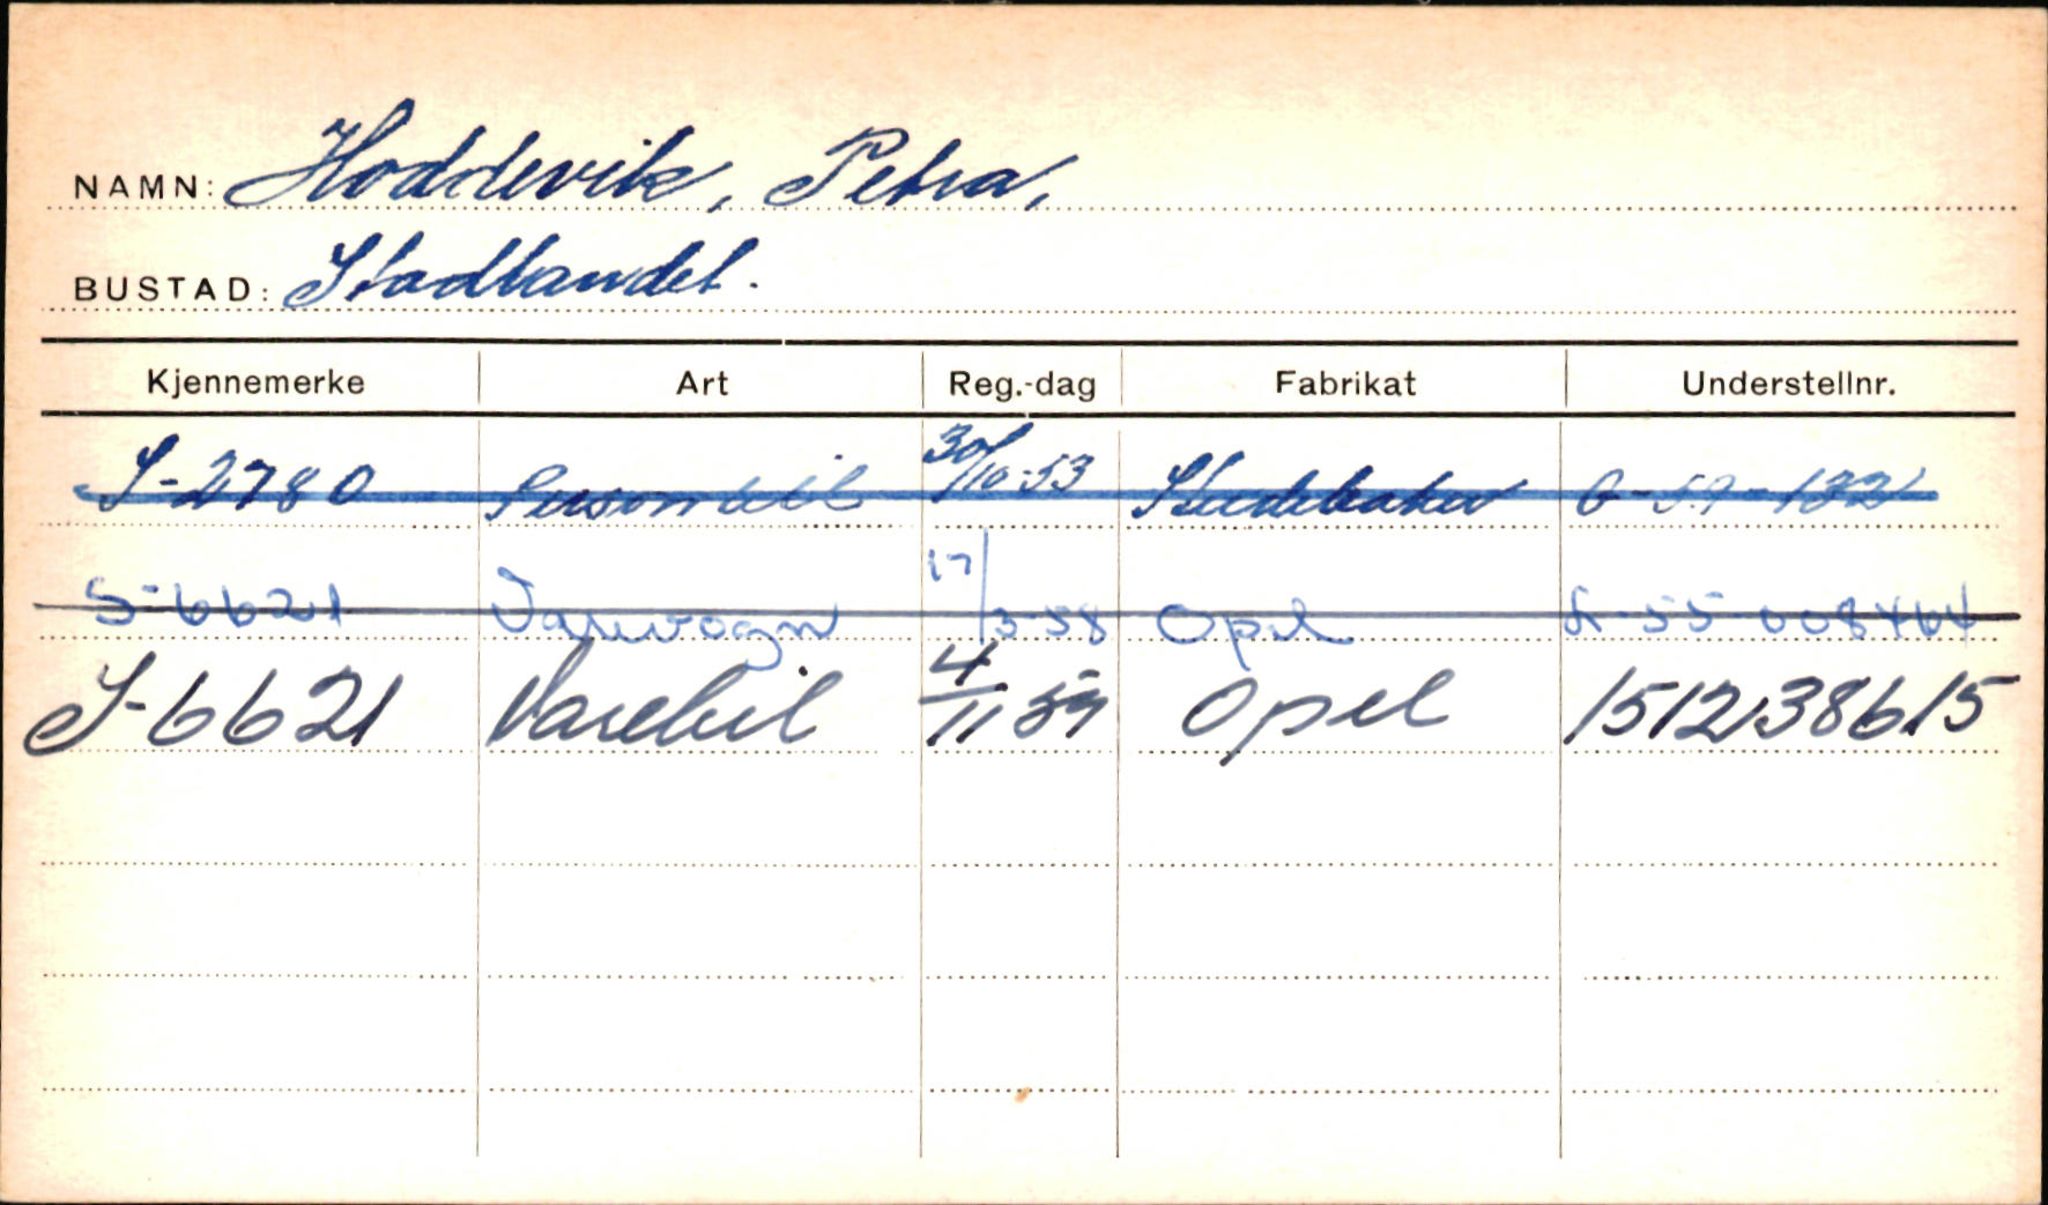 NAMN: Hoddevik, Petra,
BUSTAD: Stadlandet.
Kjennemerke Art Reg.-dag Fabrikat Understellnr.
S-2780 Personbil 30/10-53 Studebaker G-59-132
S-6621 Varevogn 17/3-58 Opel 55 008464
S-6621 Varebil 4/11 59 Opel 151238615